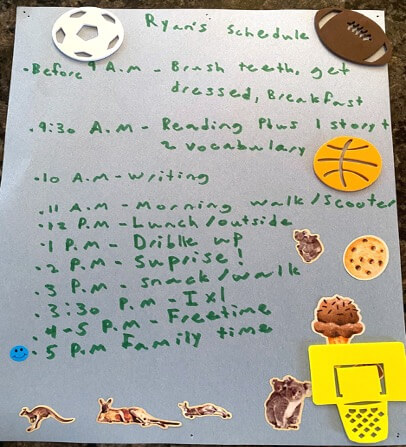 Ryan's Schedule
• Before 9 A.M - Brush teeth, get
dressed, Breakfast
• 9:30 A.M - Reading Plus 1 story +
2 vocabulary
• 10 A.M - Writing
• 11 A.M - Morning walk/Scooter
• 12 P.M - Lunch/outside
• 1 P.M - Drible up
• 2 P.M - Suprise!
• 3 P.M - snack/walk
• 3:30 P.M - Ixl
• 4-5 P.M - Freetime
• 5 P.M Family time